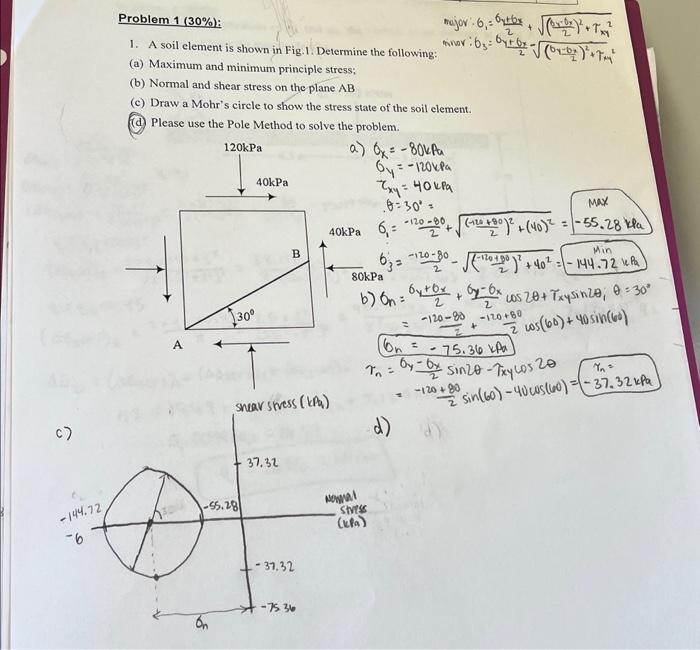 Problem 1 (30%):
major: σ₁ = σy+σx/2 + √((σy-σx/2)² + τxy²
minor: σ₃ = σy+σx/2 - √((σy-σx/2)² + τxy²
1. A soil element is shown in Fig.1. Determine the following:
(a) Maximum and minimum principle stress;
(b) Normal and shear stress on the plane AB
(c) Draw a Mohr's circle to show the stress state of the soil element.
(d) Please use the Pole Method to solve the problem.
120kPa
40kPa
40kPa
B
80kPa
30⁰
A
a) σx = -80kPa
σy = -120kPa
τxy = 40kPa
θ = 30° =
σ₁ = -120-80/2 + √((-120+80)/2)² + (40)² = MAX -55.28 kPa
σ₃ = -120-80/2 - √((-120+80)/2)² + 40² = Min -144.72 kPa
b) σn = σy+σx/2 + σy-σx/2 cos2θ + τxy sin2θ; θ = 30°
= -120-80/2 + -120+80/2 cos(60) + 40sin(60)
σn = -75.36 kPa
τn = σy-σx/2 sin2θ - τxy cos2θ
= -120+80/2 sin(60) - 40cos(60) = τn = -37.32kPa
c)
shear stress (kPa)
37.32
-144.72
-6
-55.28
Normal
stress
(kPa)
-37.32
-75.36
σn
d)